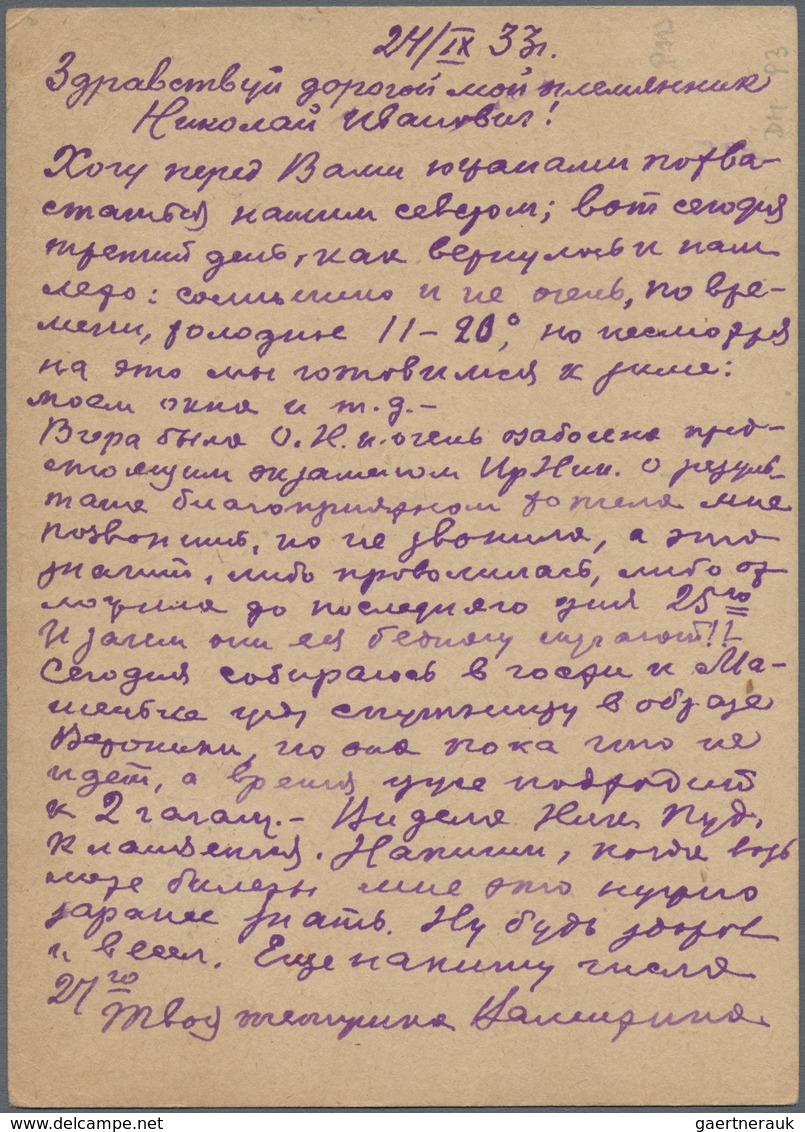 24/IX 33г.
Здравствуй дорогой мой племянник
Николай Иванович!
Хочу перед Вами южанами похва-
статься нашим севером; вот сегодня
третий день, как вернулось к нам
лето: солнышко и не очень, по вре-
мени, холодно 11-20°, но несмотря
на это мы готовимся к зиме:
моем окна и т.д.-
Вчера была О.Н. и очень озабочена пред-
стоящим экзаменом Ир Ник. О резуль-
тате благоприятном хотела мне
позвонить, но не звонила, а это
значит, либо провалилась, либо от
ложила до последняго дня 25го
И зачем они ея бедную мучают!!
Сегодня собираюсь в гости к Ма-
шеньке жду спутницу в образе
Вероники, но она пока что не
идет, а время уже подходит
к 2 часам.- Видела Ник. Пуд.
Кланяется. Напиши, когда возь
мете билеты мне это нужно
заранее знать. Ну будь здоров
и весел. Еще напишу числа
27го
Твоя
gaertnerauk